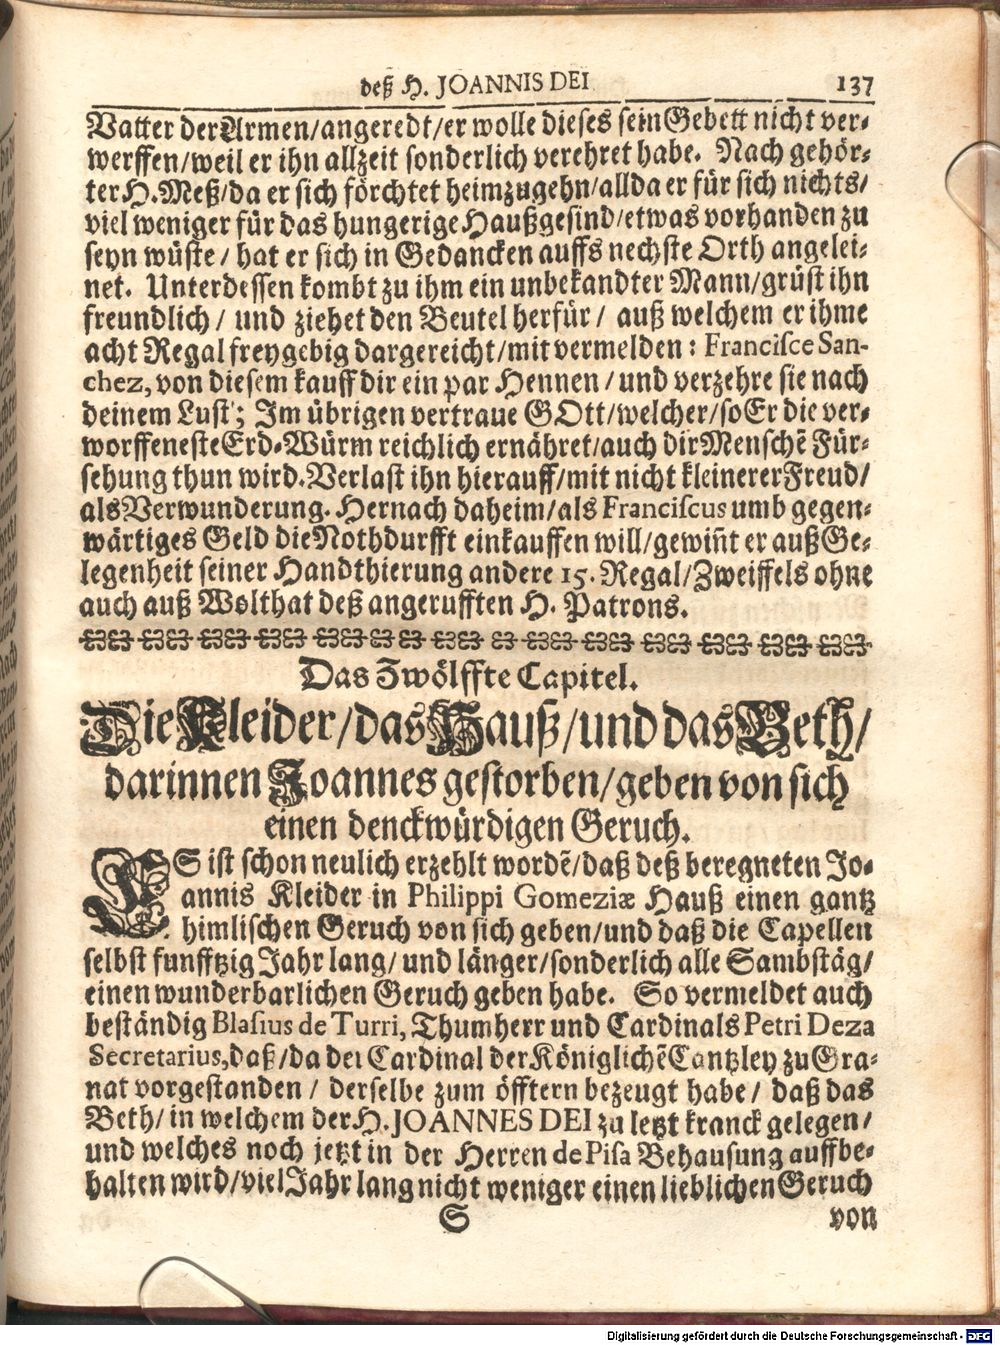 deß H. JOANNIS DEI 137
Vatter der Armen/angeredt/er wolle dieses sein Gebett nicht ver-
werffen/weil er ihn allzeit sonderlich verehret habe. Nach gehör-
ter H. Meß/da er sich förchtet heimzugehn/allda er für sich nichts/
viel weniger für das hungerige Haußgesind/etwas vorhanden zu
seyn wüste/ hat er sich in Gedancken auffs nechste Orth angelei-
net. Unterdessen kombt zu ihm ein unbekandter Mann/grüst ihn
freundlich/ und ziehet den Beutel herfür/ auß welchem er ihme
acht Regal freygebig dargereicht/mit vermelden: Francisce San-
chez, von diesem kauff dir ein par Hennen/und verzehre sie nach
deinem Lust; Im übrigen vertraue GOtt/welcher/so Er die ver-
worffeneste Erd-Würm reichlich ernähret/auch dir Menschẽ Für-
sehung thun wird. Verlast ihn hierauff/mit nicht kleinerer Freud/
als Verwunderung. Hernach daheim/als Franciscus umb gegen-
wärtiges Geld die Nothdurfft einkauffen will/gewiñt er auß Ge-
legenheit seiner Handthierung andere 15. Regal/Zweiffels ohne
auch auß Wolthat deß angerufften H. Patrons.
Das Zwölffte Capitel.
Die Kleider/das Hauß/und das Beth/
darinnen Joannes gestorben/geben von sich
einen denckwürdigen Geruch.
ES ist schon neulich erzehlt wordẽ/daß deß beregneten Jo-
annis Kleider in Philippi Gomeziæ Hauß einen gantz
himlischen Geruch von sich geben/und daß die Capellen
selbst funfftzig Jahr lang/ und länger/sonderlich alle Sambstäg/
einen wunderbarlichen Geruch geben habe. So vermeldet auch
beständig Blasius de Turri, Thumherr und Cardinals Petri Deza
Secretarius, daß/da der Cardinal der Königlichẽ Cantzley zu Gra-
nat vorgestanden/ derselbe zum öfftern bezeugt habe/ daß das
Beth/ in welchem der H. JOANNES DEI zu letzt kranck gelegen/
und welches noch jetzt in der Herren de Pisa Behausung auffbe-
halten wird/viel Jahr lang nicht weniger einen lieblichen Geruch
S von
Digitalisierung gefördert durch die Deutsche Forschungsgemeinschaft - DFG